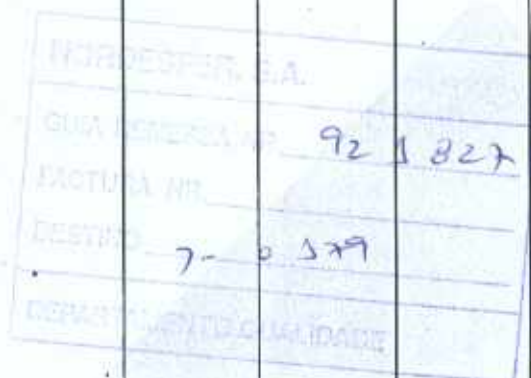 NORDESPER, S.A.
GUIA REMESSA NR. 92 1 827
FACTURA NR.
DESTINO 7- 0 179
DEPARTAMENTO QUALIDADE